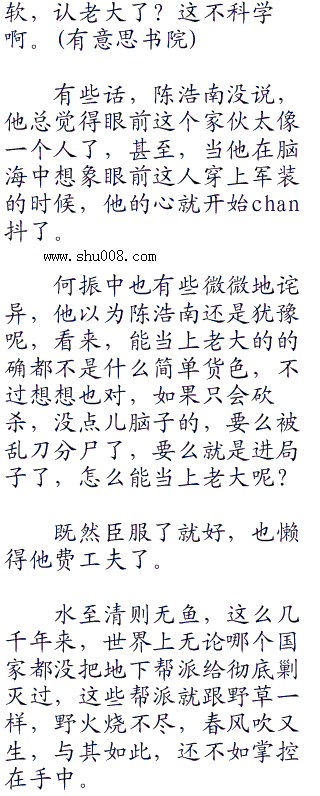 软，认老大了？这不科学
啊。(有意思书院)
有些话，陈浩南没说，
他总觉得眼前这个家伙太像
一个人了，甚至，当他在脑
海中想象眼前这人穿上军装
的时候，他的心就开始chan
抖了。
www.shu008.com
何振中也有些微微地诧
异，他以为陈浩南还是犹豫
呢，看来，能当上老大的的
确都不是什么简单货色，不
过想想也对，如果只会砍
杀，没点儿脑子的，要么被
乱刀分尸了，要么就是进局
子了，怎么能当上老大呢？
既然臣服了就好，也懒
得他费工夫了。
水至清则无鱼，这么几
千年来，世界上无论哪个国
家都没把地下帮派给彻底剿
灭过，这些帮派就跟野草一
样，野火烧不尽，春风吹又
生，与其如此，还不如掌控
在手中。